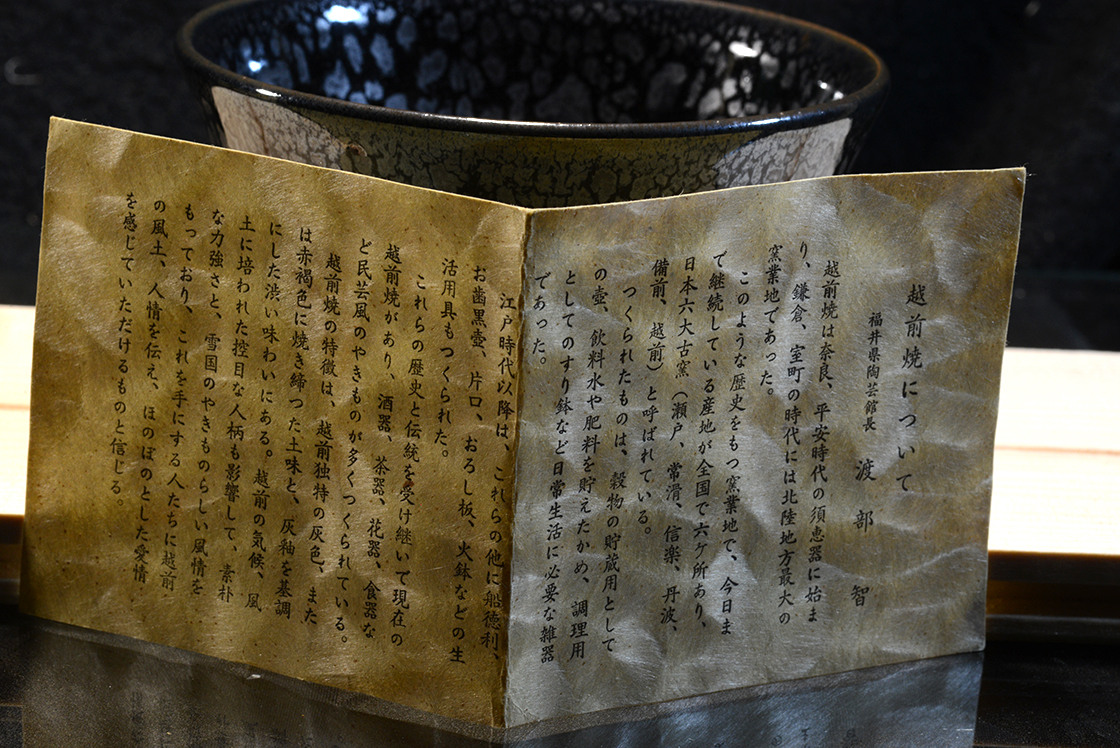 越前焼について
福井県陶芸館長　渡部　智
越前焼は奈良、平安時代の須恵器に始ま
り、鎌倉、室町の時代には北陸地方最大の
窯業地であった。
このような歴史をもつ窯業地で、今日ま
で継続している産地が全国で六ケ所あり、
日本六大古窯（瀬戸、常滑、信楽、丹波、
備前、越前）と呼ばれている。
つくられたものは、穀物の貯蔵用として
の壺、飲料水や肥料を貯えたかめ、調理用
としてのすり鉢など日常生活に必要な雑器
であった。
江戸時代以降は、これらの他に船徳利、
お歯黒壺、片口、おろし板、火鉢などの生
活用具もつくられた。
これらの歴史と伝統を受け継いで現在の
越前焼があり、酒器、茶器、花器、食器な
ど民芸風のやきものが多くつくられている。
越前焼の特徴は、越前独特の灰色、また
は赤褐色に焼き締った土味と、灰釉を基調
にした渋い味わいにある。越前の気候、風
土に培われた控目な人柄も影響して、素朴
な力強さと、雪国のやきものらしい風情を
もっており、これを手にする人たちに越前
の風土、人情を伝え、ほのぼのとした愛情
を感じていただけるものと信じる。